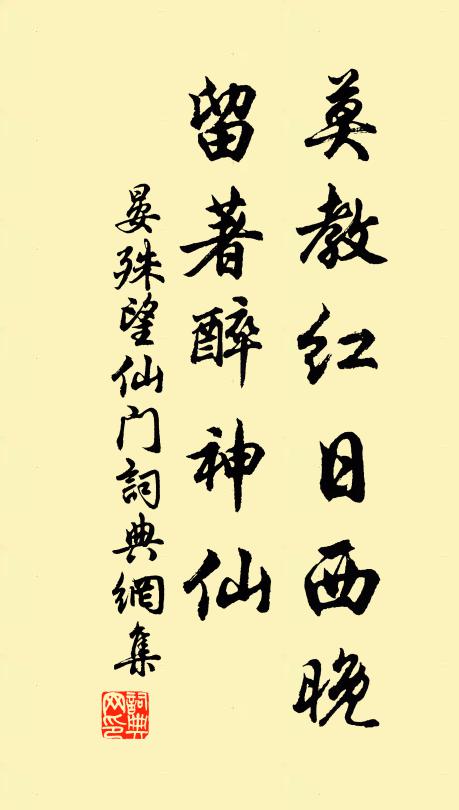 莫教红日西晚
留著醉神仙
晏殊望仙门詞典網集
詞典网印